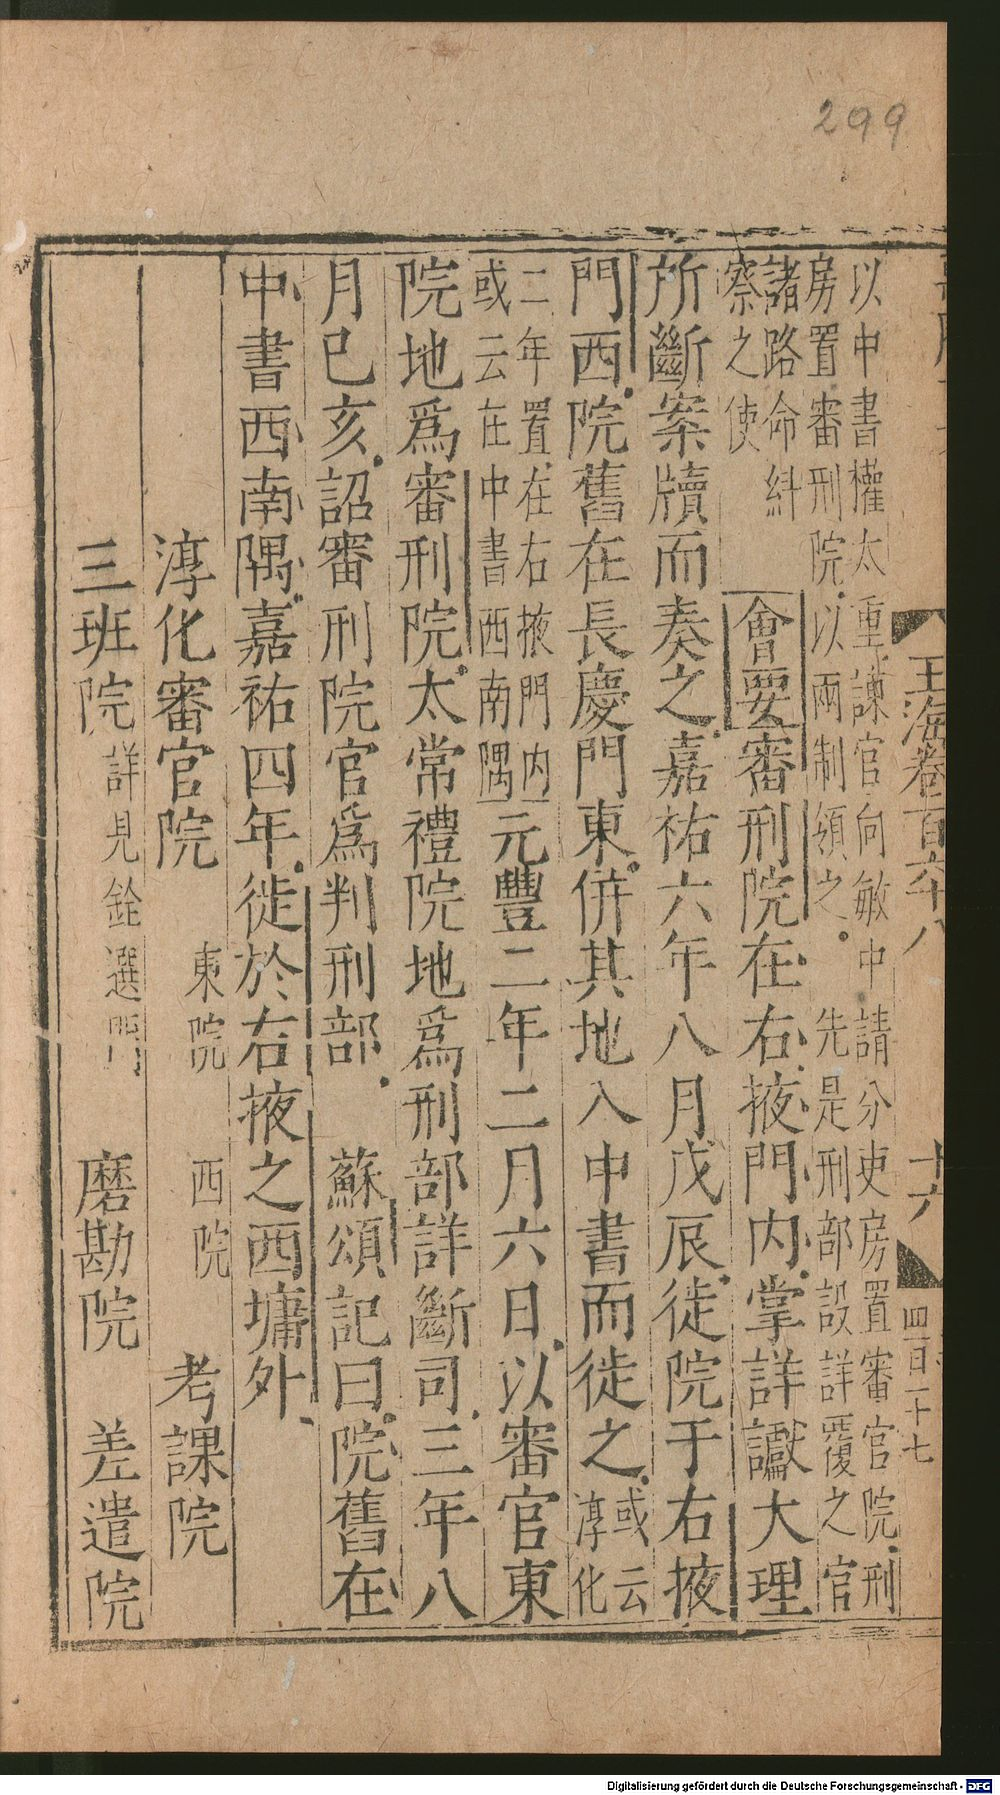 299
玉海卷百六十八　十六　四百一十七
以中書權太重諫官向敏中請分吏房置審官院刑
房置審刑院以兩制領之。先是刑部設詳覆之官
諸路命糾
察之使
會要審刑院在右掖門内掌詳讞大理
所斷案牘而奏之嘉祐六年八月戊辰徙院于右掖
門西院舊在長慶門東併其地入中書而徙之或云淳化
二年置在右掖門内
或云在中書西南隅
元豐二年二月六日以審官東
院地爲審刑院太常禮院地爲刑部詳斷司三年八
月已亥詔審刑院官爲判刑部　蘇頌記曰院舊在
中書西南隅嘉祐四年徙於右掖之西墉外
淳化審官院　東院　西院　考課院
三班院詳見銓選門　磨勘院　差遣院
Digitalisierung gefördert durch die Deutsche Forschungsgemeinschaft - DFG